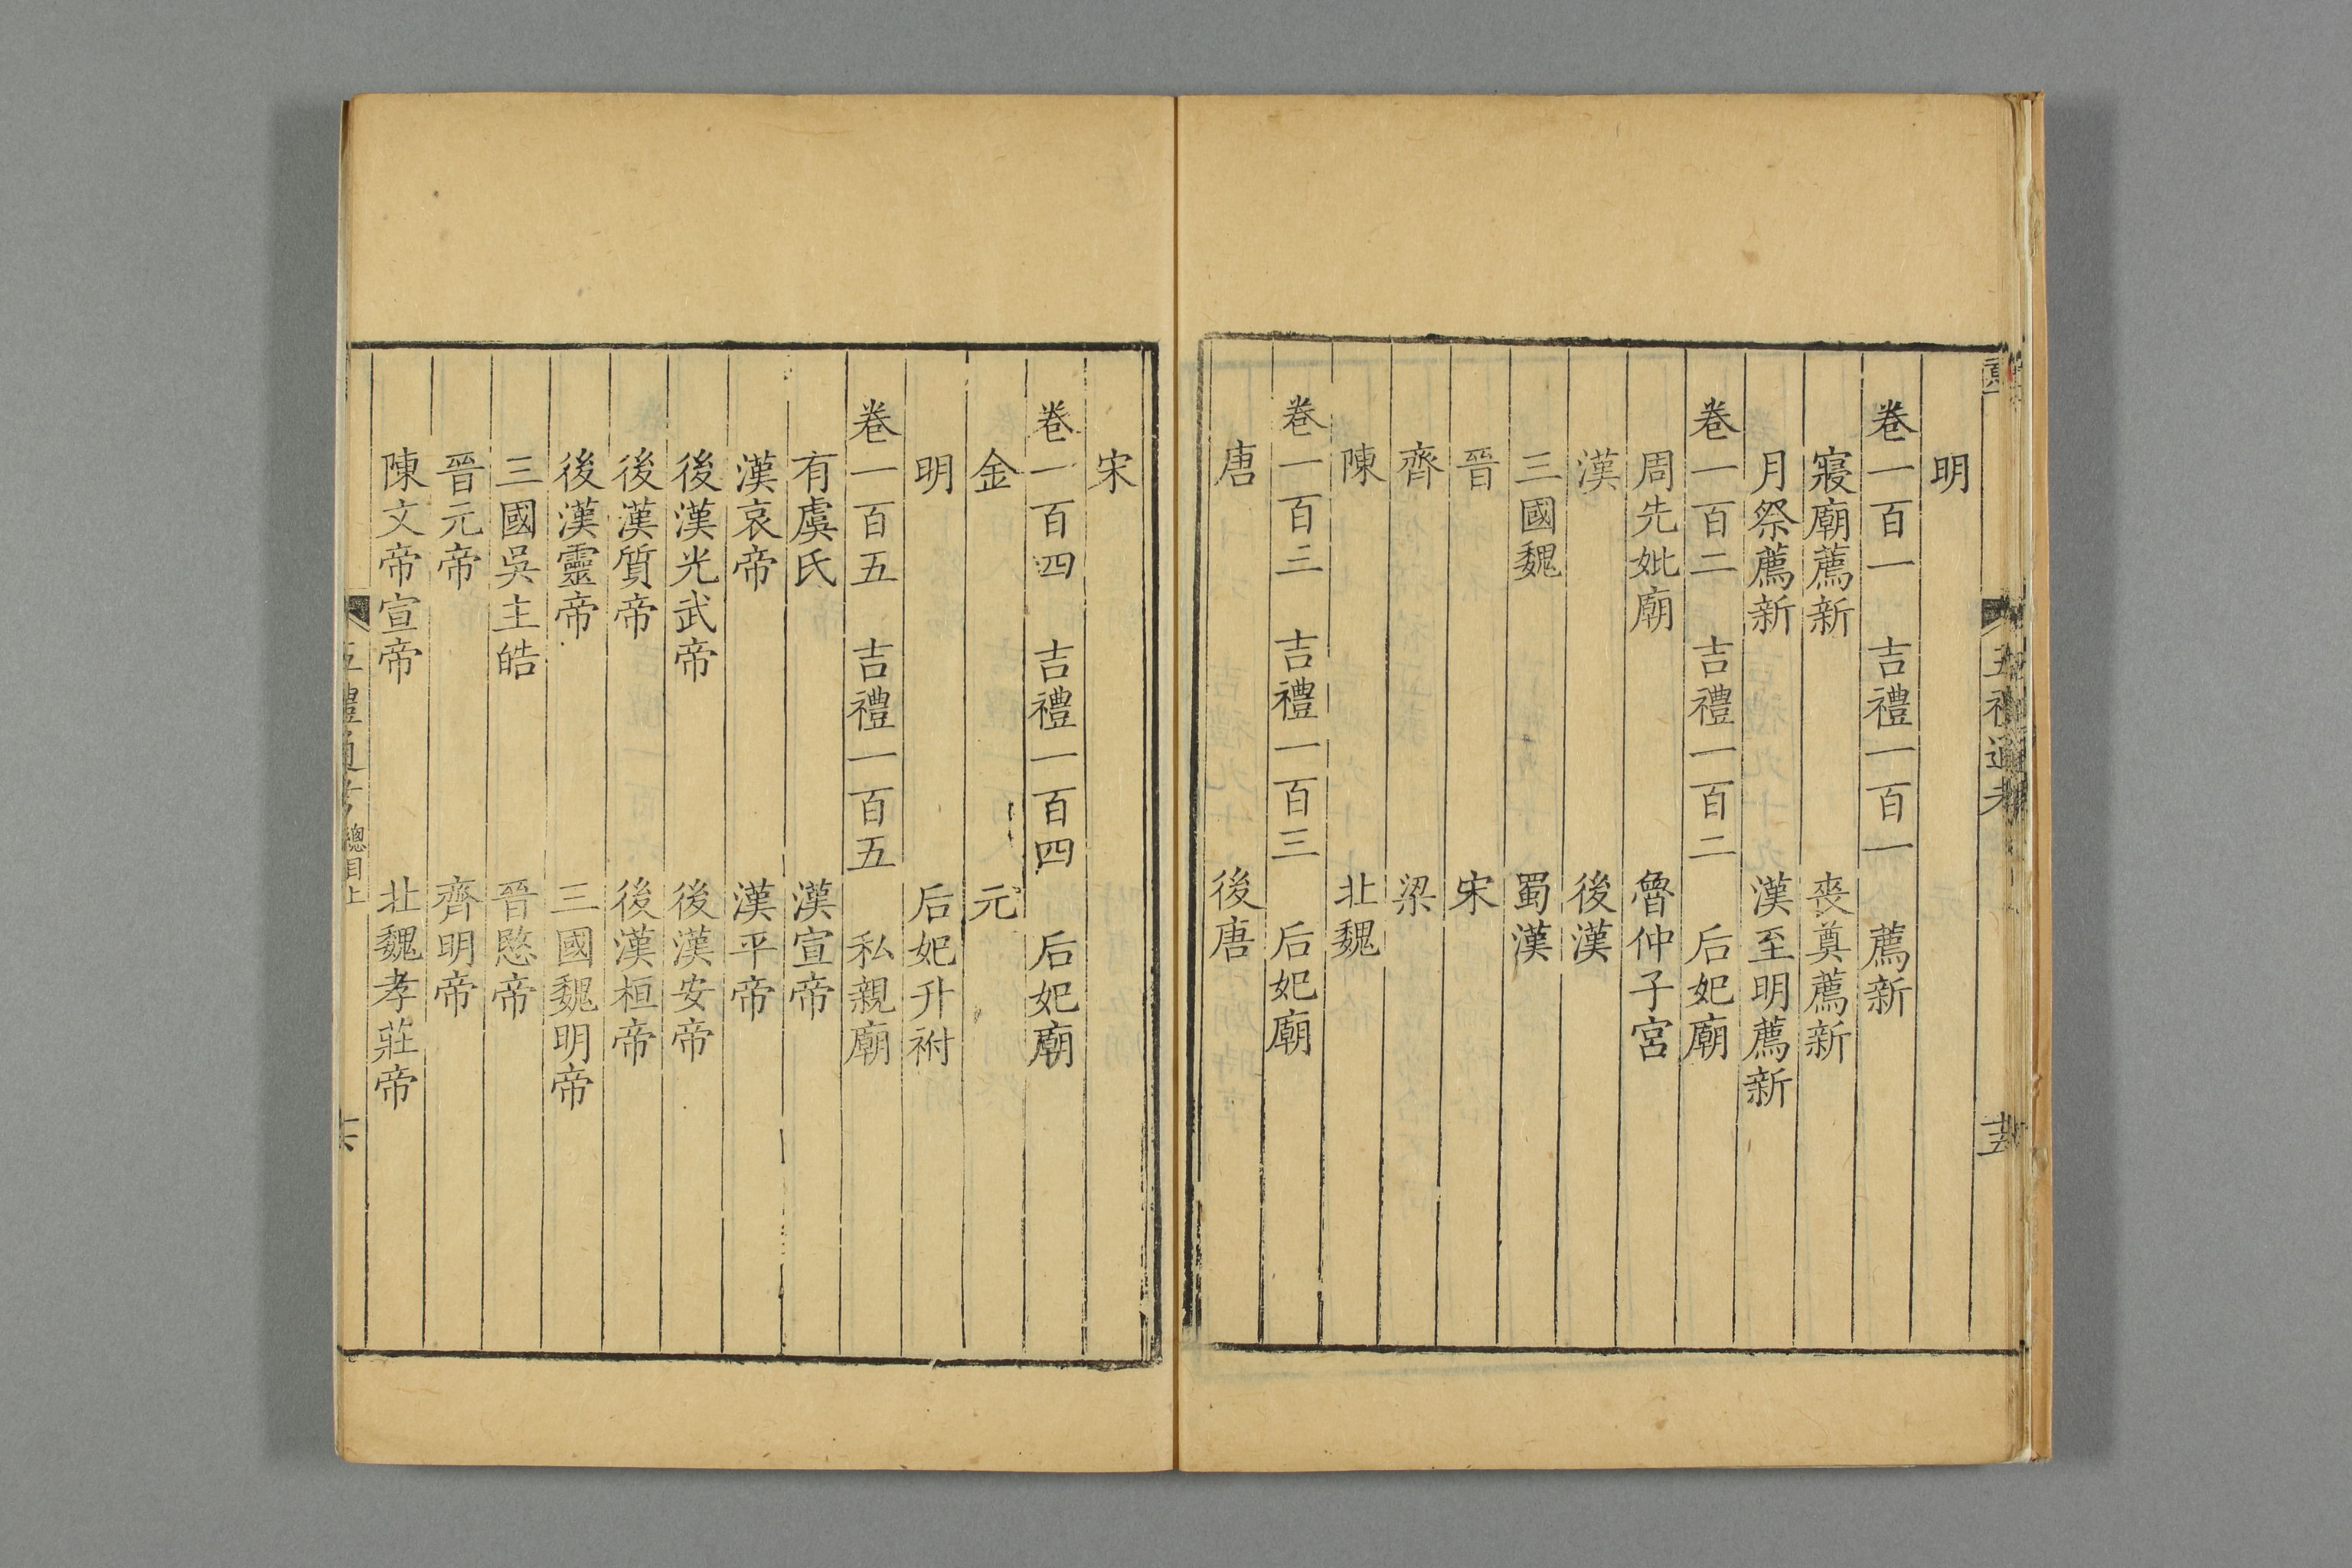 五禮通考
明
卷一百一　吉禮一百一　薦新
寢廟薦新　喪奠薦新
月祭薦新　漢至明薦新
卷一百二　吉禮一百二　后妃廟
周先妣廟　魯仲子宮
漢　後漢
三國魏　蜀漢
晉　宋
齊　梁
陳　北魏
卷一百三　吉禮一百三　后妃廟
唐　後唐
宋
卷一百四　吉禮一百四　后妃廟
金　元
明　后妃升祔
卷一百五　吉禮一百五　私親廟
有虞氏　漢宣帝
漢哀帝　漢平帝
後漢光武帝　後漢安帝
後漢質帝　後漢桓帝
後漢靈帝　三國魏明帝
三國吳主皓　晉愍帝
晉元帝　齊明帝
陳文帝宣帝　北魏孝莊帝
五禮通考　總目上